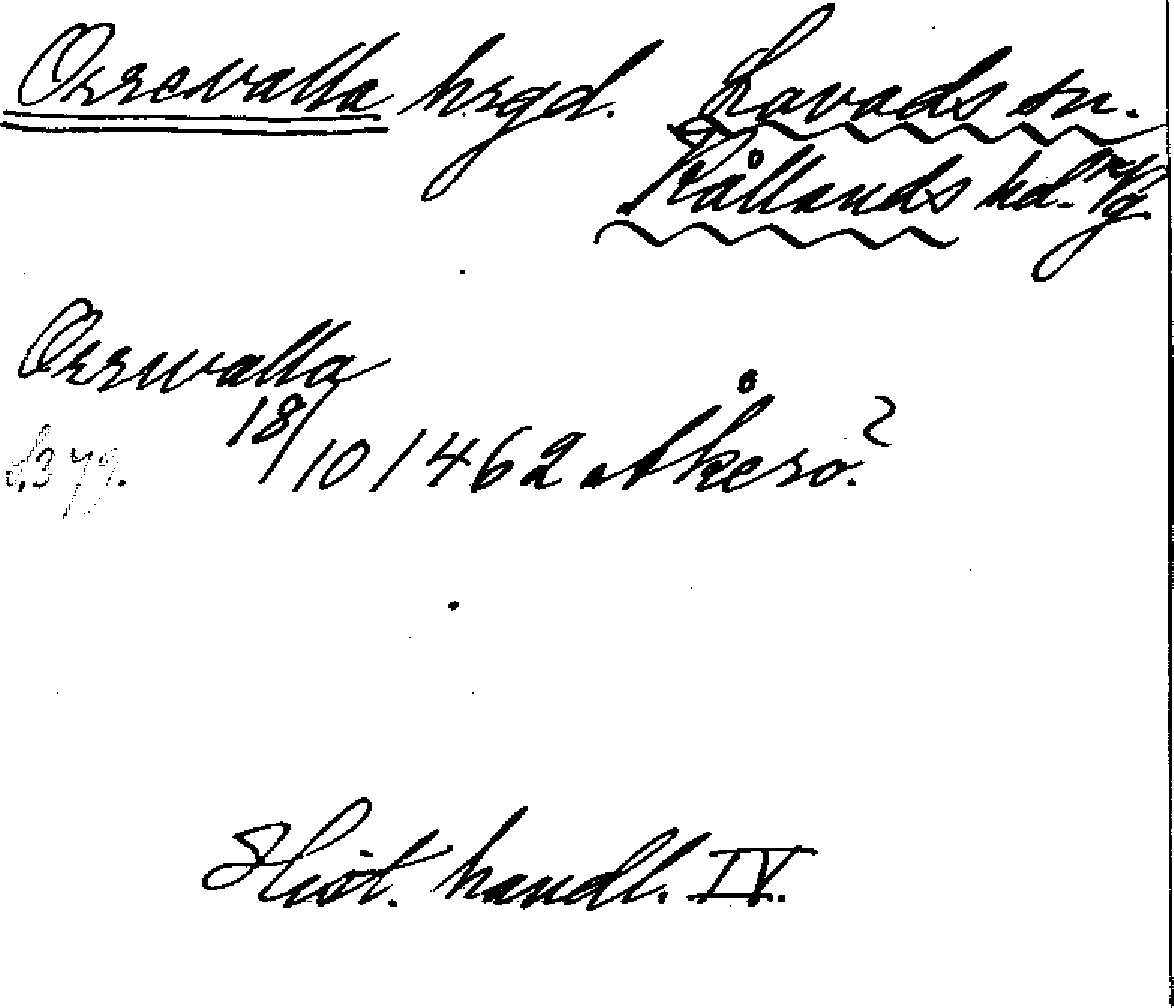 Orrevalla hrgd. Lavads sn.
Kållands hd. Vg
Orrwalla
18/10 1462 Åkerö?
s. 379.
Hist. handl. IV.